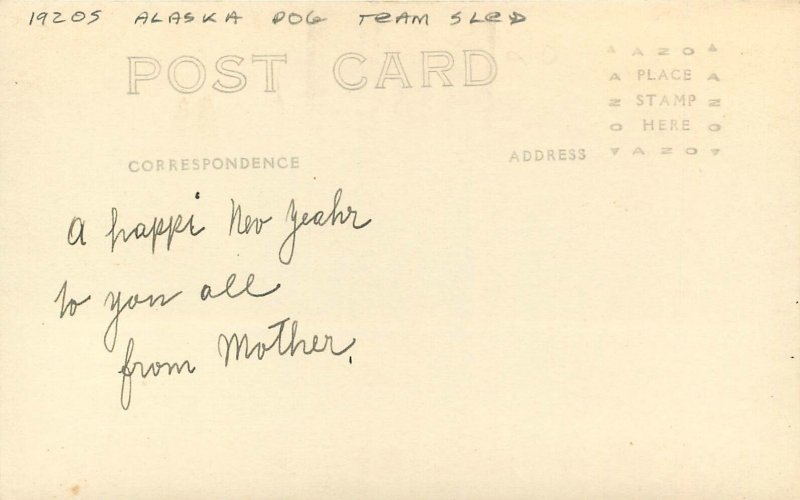 1920S ALASKA DOG TEAM SLED
POST CARD
AZO
PLACE
STAMP
HERE
AZO
CORRESPONDENCE
ADDRESS
a happi Nev Yeahr
to you all
from Mother.